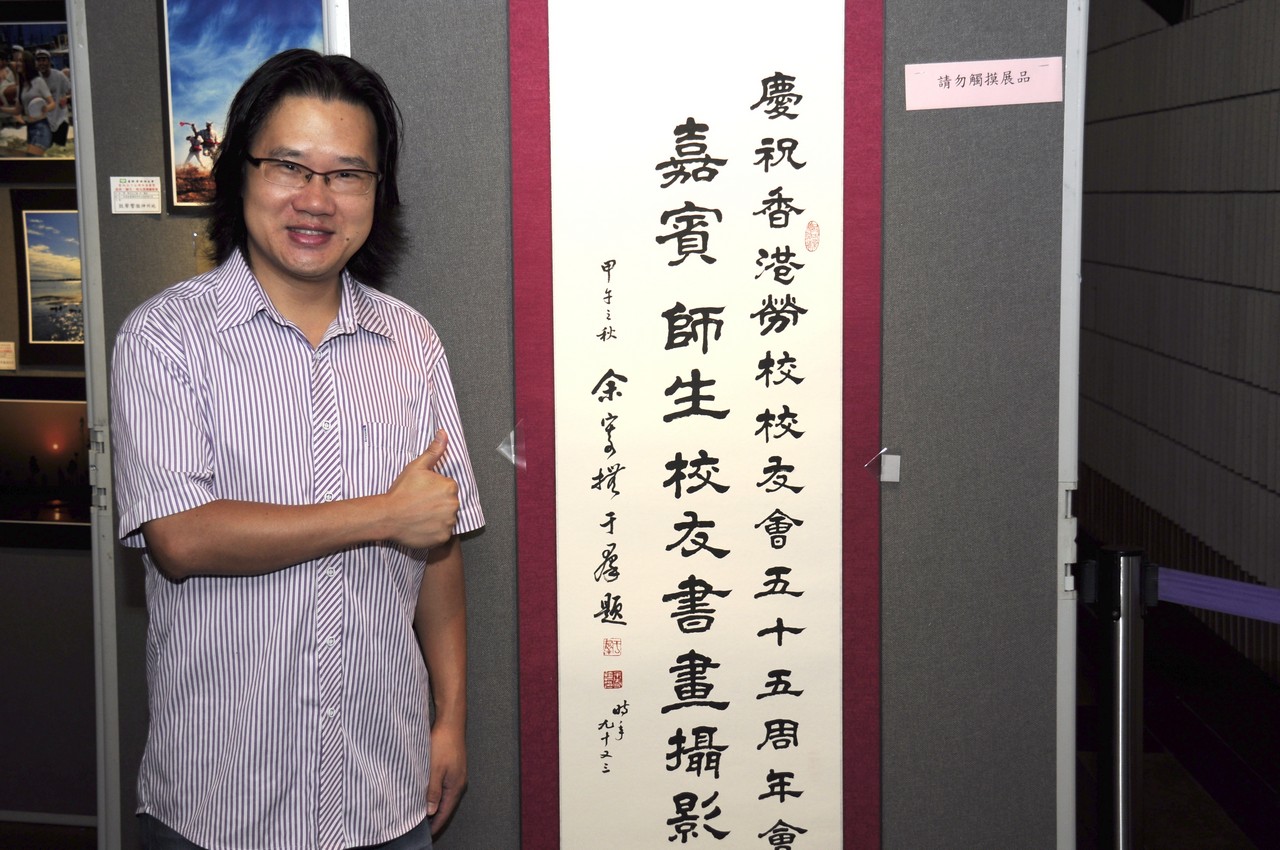 慶祝香港勞校校友會五十五周年會
嘉賓師生校友書畫攝影
甲午之秋
余寄撐于羣題
時年
九十又三
請勿觸摸展品